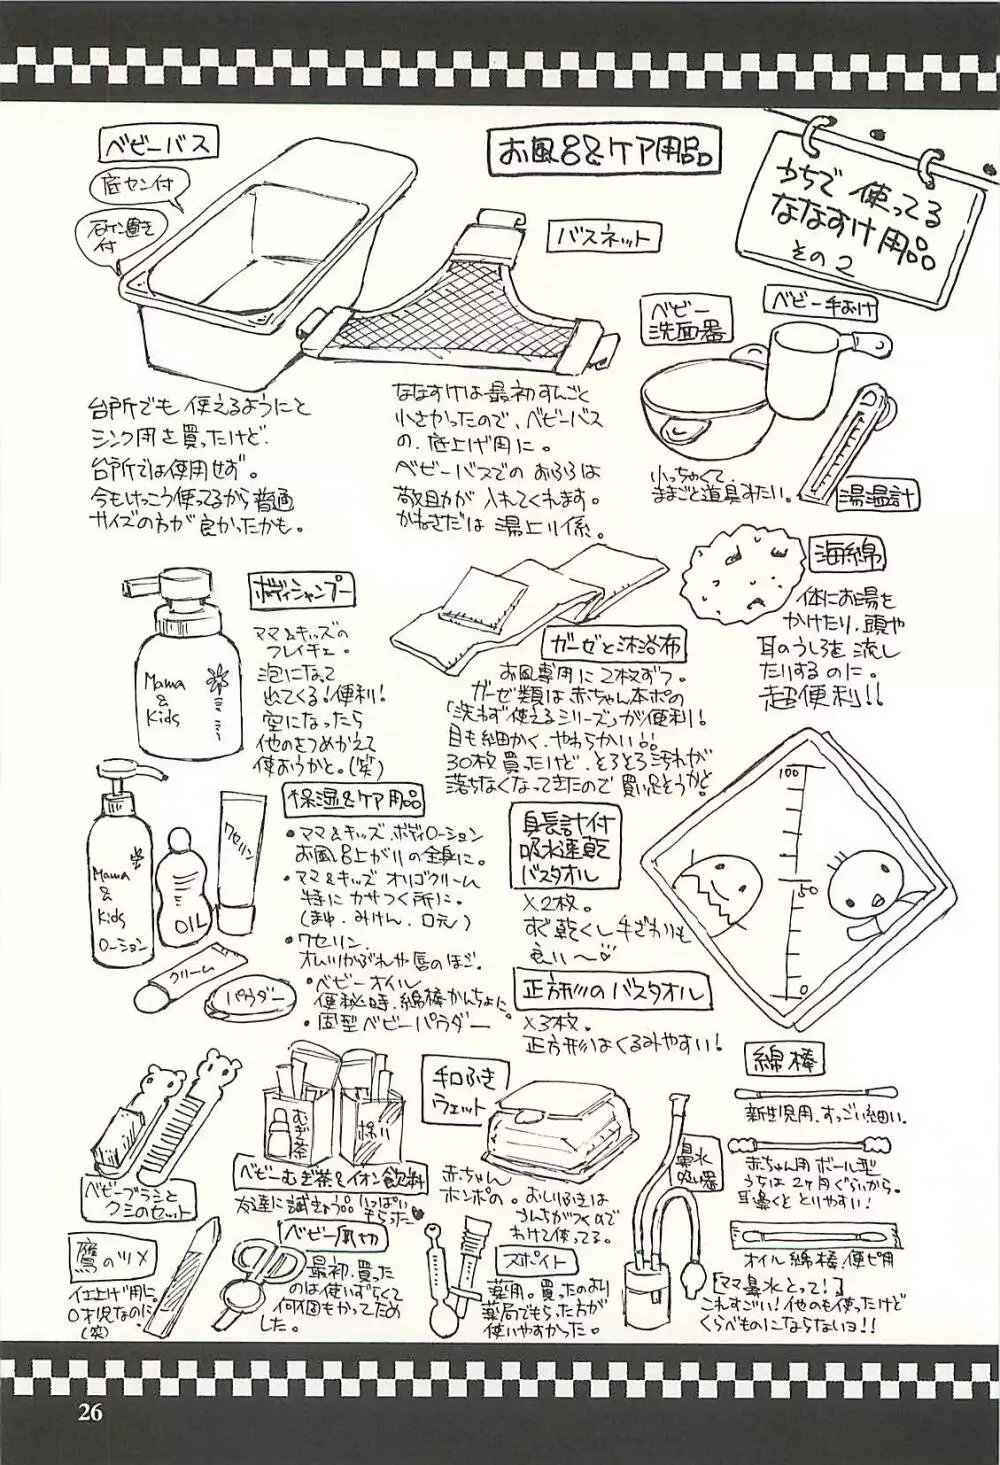 うちで使ってる
ななすけ用品
その2
お風呂&ケア用品
ベビーバス
底セン付
石ケン置き
付
台所でも使えるようにと
シンク用を買ったけど
台所では使用せず。
今もけっこう使ってるから普通
サイズの方が良かったかも。
バスネット
ななすけは最初すんごく
小さかったので、ベビーバス
の、底上げ用に。
ベビーバスでのおふろは
敬助が入れてくれます。
かねさだは湯上り係。
ベビー
洗面器
ベビー手おけ
小っちゃくて、
ままごと道具みたい。
湯温計
ボディシャンプー
ママ&キッズの
フレイチェ。
泡になって
出てくる!便利!
空になったら
他のをつめかえて
使おうかと。(笑)
Mama
&
Kids
ガーゼと沐浴布
お風呂専用に2枚ずつ。
ガーゼ類は赤ちゃん本ポの
「洗わず使えるシリーズ」が便利!
目も細かく、やわらかい!!
30枚買ったけど、とろとろ汚れが
落ちなくなってきたので買い足そうかと。
海綿
体にお湯を
かけたり、頭や
耳のうしろを流し
たりするのに。
超便利!!
保湿&ケア用品
・ママ&キッズ ボディローション
お風呂上がりの全身に。
・ママ&キッズ オリゴクリーム
特にカサつく所に。
(まゆ・みけん・口元)
・ワセリン
オムツかぶれや唇のほご。
・ベビーオイル
便秘時、綿棒かんちょに。
・固型ベビーパウダー
Mama
&
Kids
ローション
OIL
ワセリン
クリーム
パウダー
身長計付
吸水速乾
バスタオル
×2枚。
すぐ乾くし手ざわりも
良い〜♡
100
50
0
正方形のバスタオル
×3枚。
正方形はくるみやすい!
ベビーブラシと
クシのセット
むぎ茶
ベビーむぎ茶&イオン飲料
友達に試きょう品いっぱい
もらった♥
手口ふき
ウェット
赤ちゃん
ホンポの。おしりふきは
うんちがつくので
わけて使ってる。
鼻水
吸い器
「ママ鼻水とって!」
これすごい!他のも使ったけど
くらべものにならないヨ!!
綿棒
新生児用、すっごい細い。
赤ちゃん用 ボール型
うちは2ヶ月ぐらいから。
耳・鼻くそとりやすい!
オイル綿棒、便ピ用
鷹のツメ
仕上げ用に。
0才児なのに
(笑)
ベビー爪切
最初、買った
のは使いずらくて
何個もかってため
しました。
スポイト
薬用。買ったのより
薬局でもらった方が
使いやすかった。
26